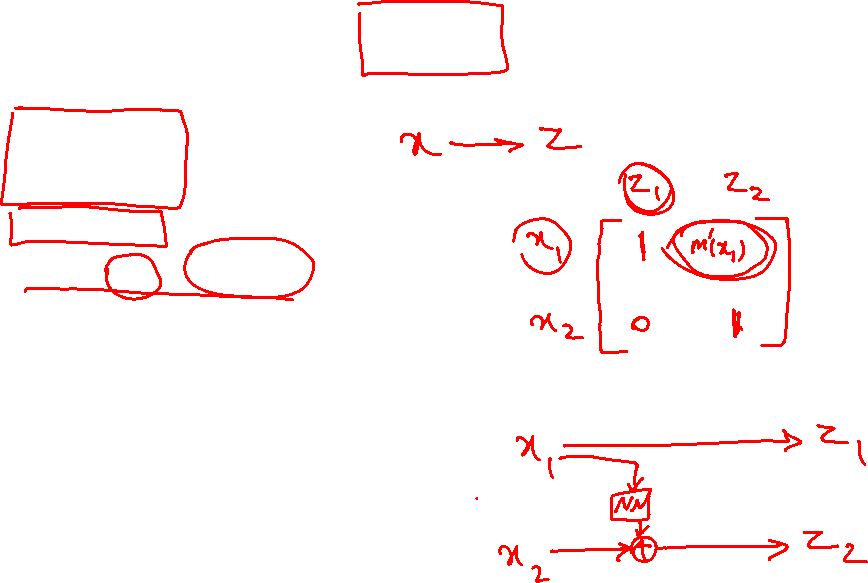 x → z
z₁ z₂
x₁ 1 m'(x₁)
x₂ 0 1
x₁ → z₁
NN
x₂ → + → z₂